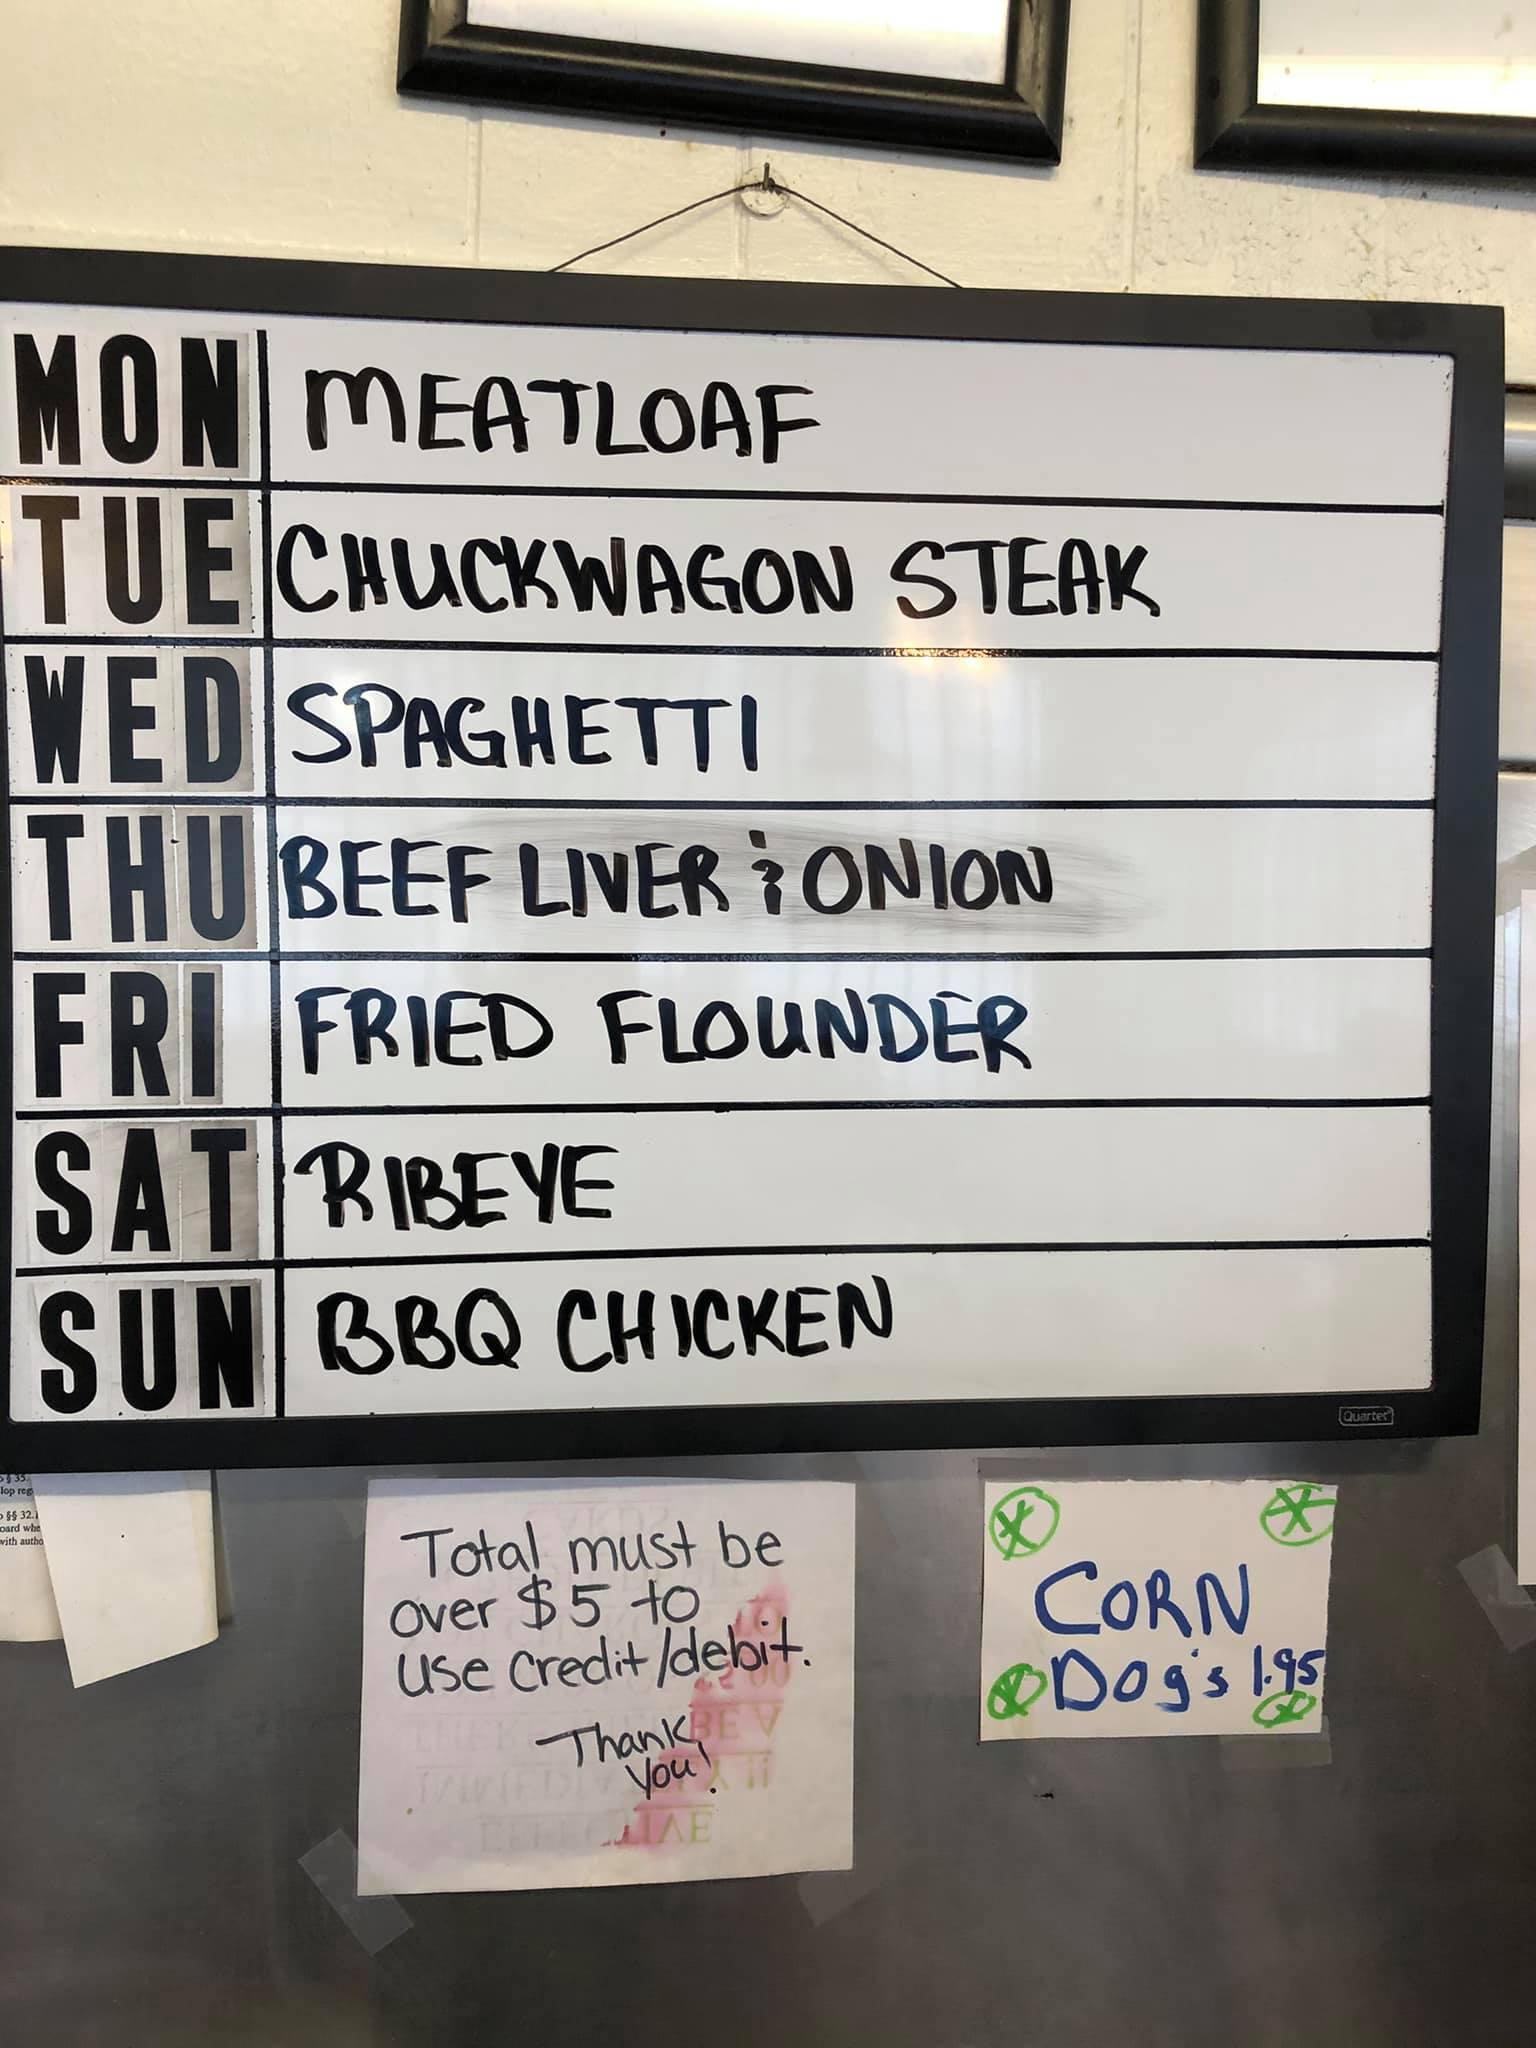 MON MEATLOAF
TUE CHUCKWAGON STEAK
WED SPAGHETTI
THU BEEF LIVER & ONION
FRI FRIED FLOUNDER
SAT RIBEYE
SUN BBQ CHICKEN
Quartet
§ 35.
§§ 32.
with
Total must be
over $5 to
use credit/debit.
Thank
you!
CORN
Dog's 1.95